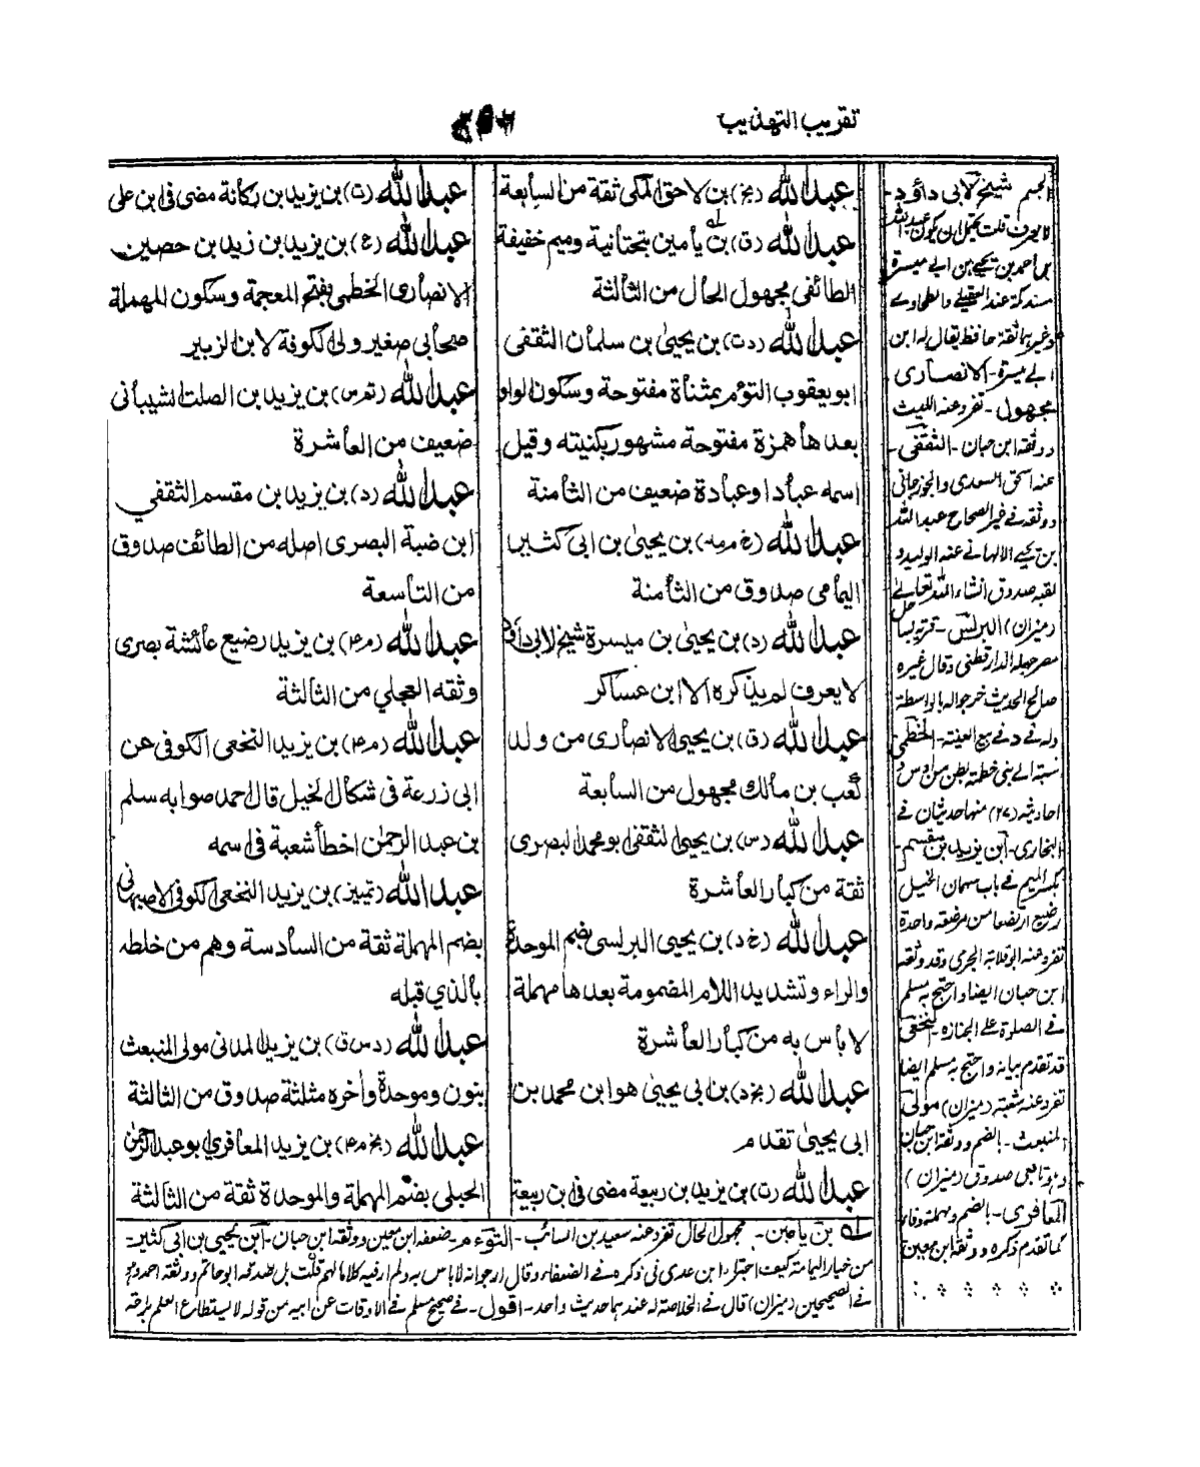 تقريب التهذيب
عبد الله (بخ) بن لاحق المكى ثقة من السابعة
عبد الله (ق) بن يامين بتحتانية وميم خفيفة
الطائفى مجهول الحال من الثالثة
عبد الله (دت) بن يحيىٰ بن سلمان الثقفى
ابو يعقوب التوؤم بمثناة مفتوحة وسكون الواو
بعدها همزة مفتوحة مشهور بكنيته وقيل
اسمه عبادا وعبادة ضعيف من الثامنة
عبد الله (خ م مد) بن يحيىٰ بن ابى كثير
اليمامى صدوق من الثامنة
عبد الله (د) بن يحيىٰ بن ميسرة شيخ لابى داؤد
لا يعرف لم يذكره الا ابن عساكر
عبد الله (ق) بن يحيىٰ الانصارى من ولد
كعب بن مالك مجهول من السابعة
عبد الله (س) بن يحيىٰ الثقفى ابو محمد البصرى
ثقة من كبار العاشرة
عبد الله (خ د) بن يحيى البرلسى بضم الموحدة
والراء وتشديد اللام المضمومة بعدها مهملة
لا بأس به من كبار العاشرة
عبد الله (بخ د) بن ابى يحيىٰ هو ابن محمد بن
ابى يحيىٰ تقدم
عبد الله (ت) بن يزيد بن ربيعة مضى فى ابن ربيعة
عبد الله (ت) بن يزيد بن ركانة مضى فى ابن على
عبد الله (ع) بن يزيد بن زيد بن حصين
الانصارى الخطمى بفتح المعجمة وسكون المهملة
صحابى صغير ولى الكوفة لابن الزبير
عبد الله بن يزيد بن الصلت الشيبانى
ضعيف من العاشرة
عبد الله (د) بن يزيد بن مقسم الثقفي
ابن ضبة البصرى اصله من الطائف صدوق
من التاسعة
عبد الله (م ٤) بن يزيد رضيع عائشة بصرى
وثقه العجلي من الثالثة
عبد الله (م ٤) بن يزيد النخعى الكوفى عن
ابى زرعة فى شكال الخيل قال احمد صوابه سلم
بن عبد الرحمٰن اخطأ شعبة فى اسمه
عبد الله (تمييز) بن يزيد النخعى الكوفى الاصبهانى
بضم المهملة ثقة من السادسة وهم من خلطه
بالذي قبله
عبد الله (د س ق) بن يزيد المدنى مولى المنبعث
بنون وموحدة وأخره مثلثة صدوق من الثالثة
عبد الله (بخ م ٤) بن يزيد المعافري ابو عبد الرحمٰن
الحبلى بضم المهملة والموحدة ثقة من الثالثة
الجيم شيخ لابى داؤد-
لا يعرف قلت يحتمل ان يكون عبد الله
بن احمد بن يحيے بن ابے ميسرة
عند العقيلے والطحاوے
وغيرهما ثقة حافظ يقال له ابن
ابے ميسرة- الانصارى
مجهول- تفرد عنه الليث
ووثقه ابن حبان- الثقفى-
عنه اسحٰق السعدى والجوزجانى
ووثقه فے غير الصحاح عبد الله
بن يحيے الالهانے عنه الوليد و
لقبه صدوق انشاء الله تعالےٰ
(ميزان) البرلسى- قرية بسا حل
مصر جهله الدارقطنى وقال غيره
صالح الحديث خرجوا له بالواسطة
وله فے د فے بيع العينة- الخطمى
نسبة الے بنى خطمة بطن من اوس و
احاديثه (٢٧) منها حديثان فے
البخارى- ابن يزيد بن مقسم-
بكسر الميم فے باب سمان الخيل
رضيع ارتضعا من مرضعة واحدة
تفرد عنه ابو قلابة الجرمى وقد وثقه
ابن حبان ايضا واحتج به مسلم
فے الصلوة على الجنازة- النخعى
قد تقدم بيانه واحتج به مسلم ايضا
تفرد عنه شعبة (ميزان) مولى
المنبعث- بالضم ووثقه ابن حبان
وهو تابعى صدوق (ميزان)
المعافرى- بالضم ومهملة وفاء
كما تقدم ذكره ووثقه ابن معين
له بن يامين-. مجهول الحال تفرد عنه سعيد بن السائب- التوءم- ضعفه ابن معين ووثقه ابن حبان- ابن يحيىٰ بن ابى كثير-
من خيار اليمامة ابن عدى فى ذكره فے الضعفاء وقال ارجو انه لا باس به ولم ار فيه كلاما لهم قلت بل صدقه ابو حاتم ووثقه احمد وهو
فے الصحيحين (ميزان) قال فے الخلاصة له عندهما حديث واحد- اقول- فے صحيح مسلم فے الاوقات عن ابيه من قوله لا يستطاع العلم براحة